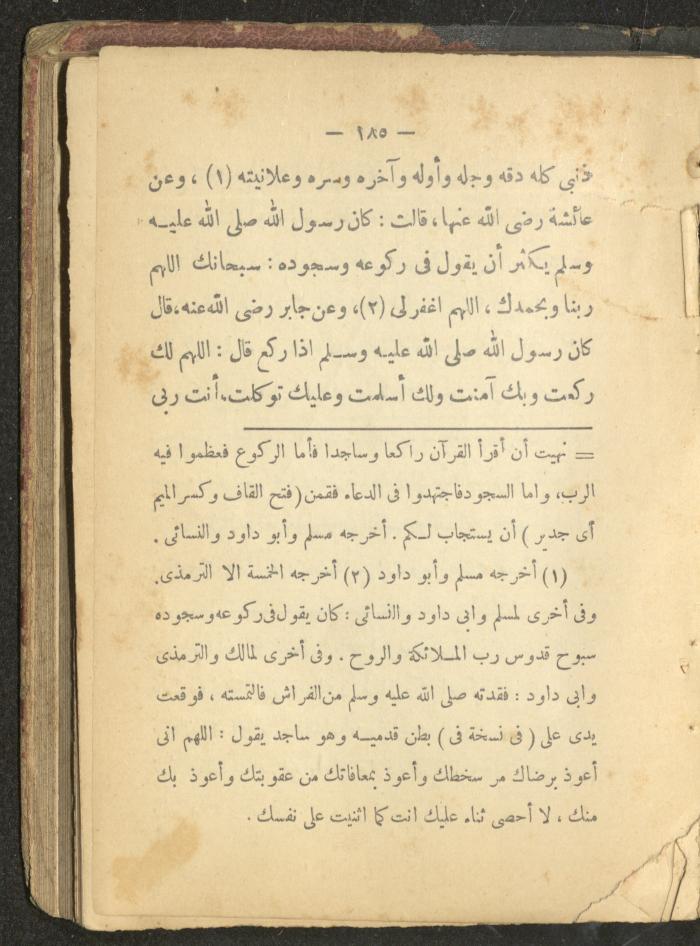 — ١٨٥ —
ذنبى كله دقه وجله وأوله وآخره وسره وعلانيته (١) ، وعن
عائشة رضى الله عنها ، قالت : كان رسول الله صلى الله عليــه
وسلم يــكثر أن يقول فى ركوعه وسجوده : سبحانك اللهم
ربنا وبحمدك ، اللهم اغفرلى (٢) ، وعن جابر رضى الله عنه ، قال
كان رسول الله صلى الله عليه وســلم اذا ركع قال : اللهم لك
ركعت وبك آمنت ولك أسلمت وعليك توكلت ، أنت ربى
= نهيت أن أقرأ القرآن راكعا وساجدا فأما الركوع فعظموا فيه
الرب ، واما السجود فاجتهدوا فى الدعاء فقمن ( فتح القاف وكسر الميم
أى جدير ) أن يستجاب لــكم . أخرجه مسلم وأبو داود والنسائى .
(١) أخرجه مسلم وأبو داود (٢) أخرجه الخمسة الا الترمذى .
وفى أخرى لمسلم وابى داود والنسائى : كان يقول فى ركوعه وسجوده
سبوح قدوس رب المــلائكة والروح . وفى أخرى لمالك والترمذى
وابى داود : فقدته صلى الله عليه وسلم من الفراش فالتمسته ، فوقعت
يدى على ( فى نسخة فى ) بطن قدميــه وهو ساجد يقول : اللهم انى
أعوذ برضاك مر سخطك وأعوذ بمعافاتك من عقوبتك وأعوذ بك
منك ، لا أحصى ثناء عليك انت كما اثنيت على نفسك .